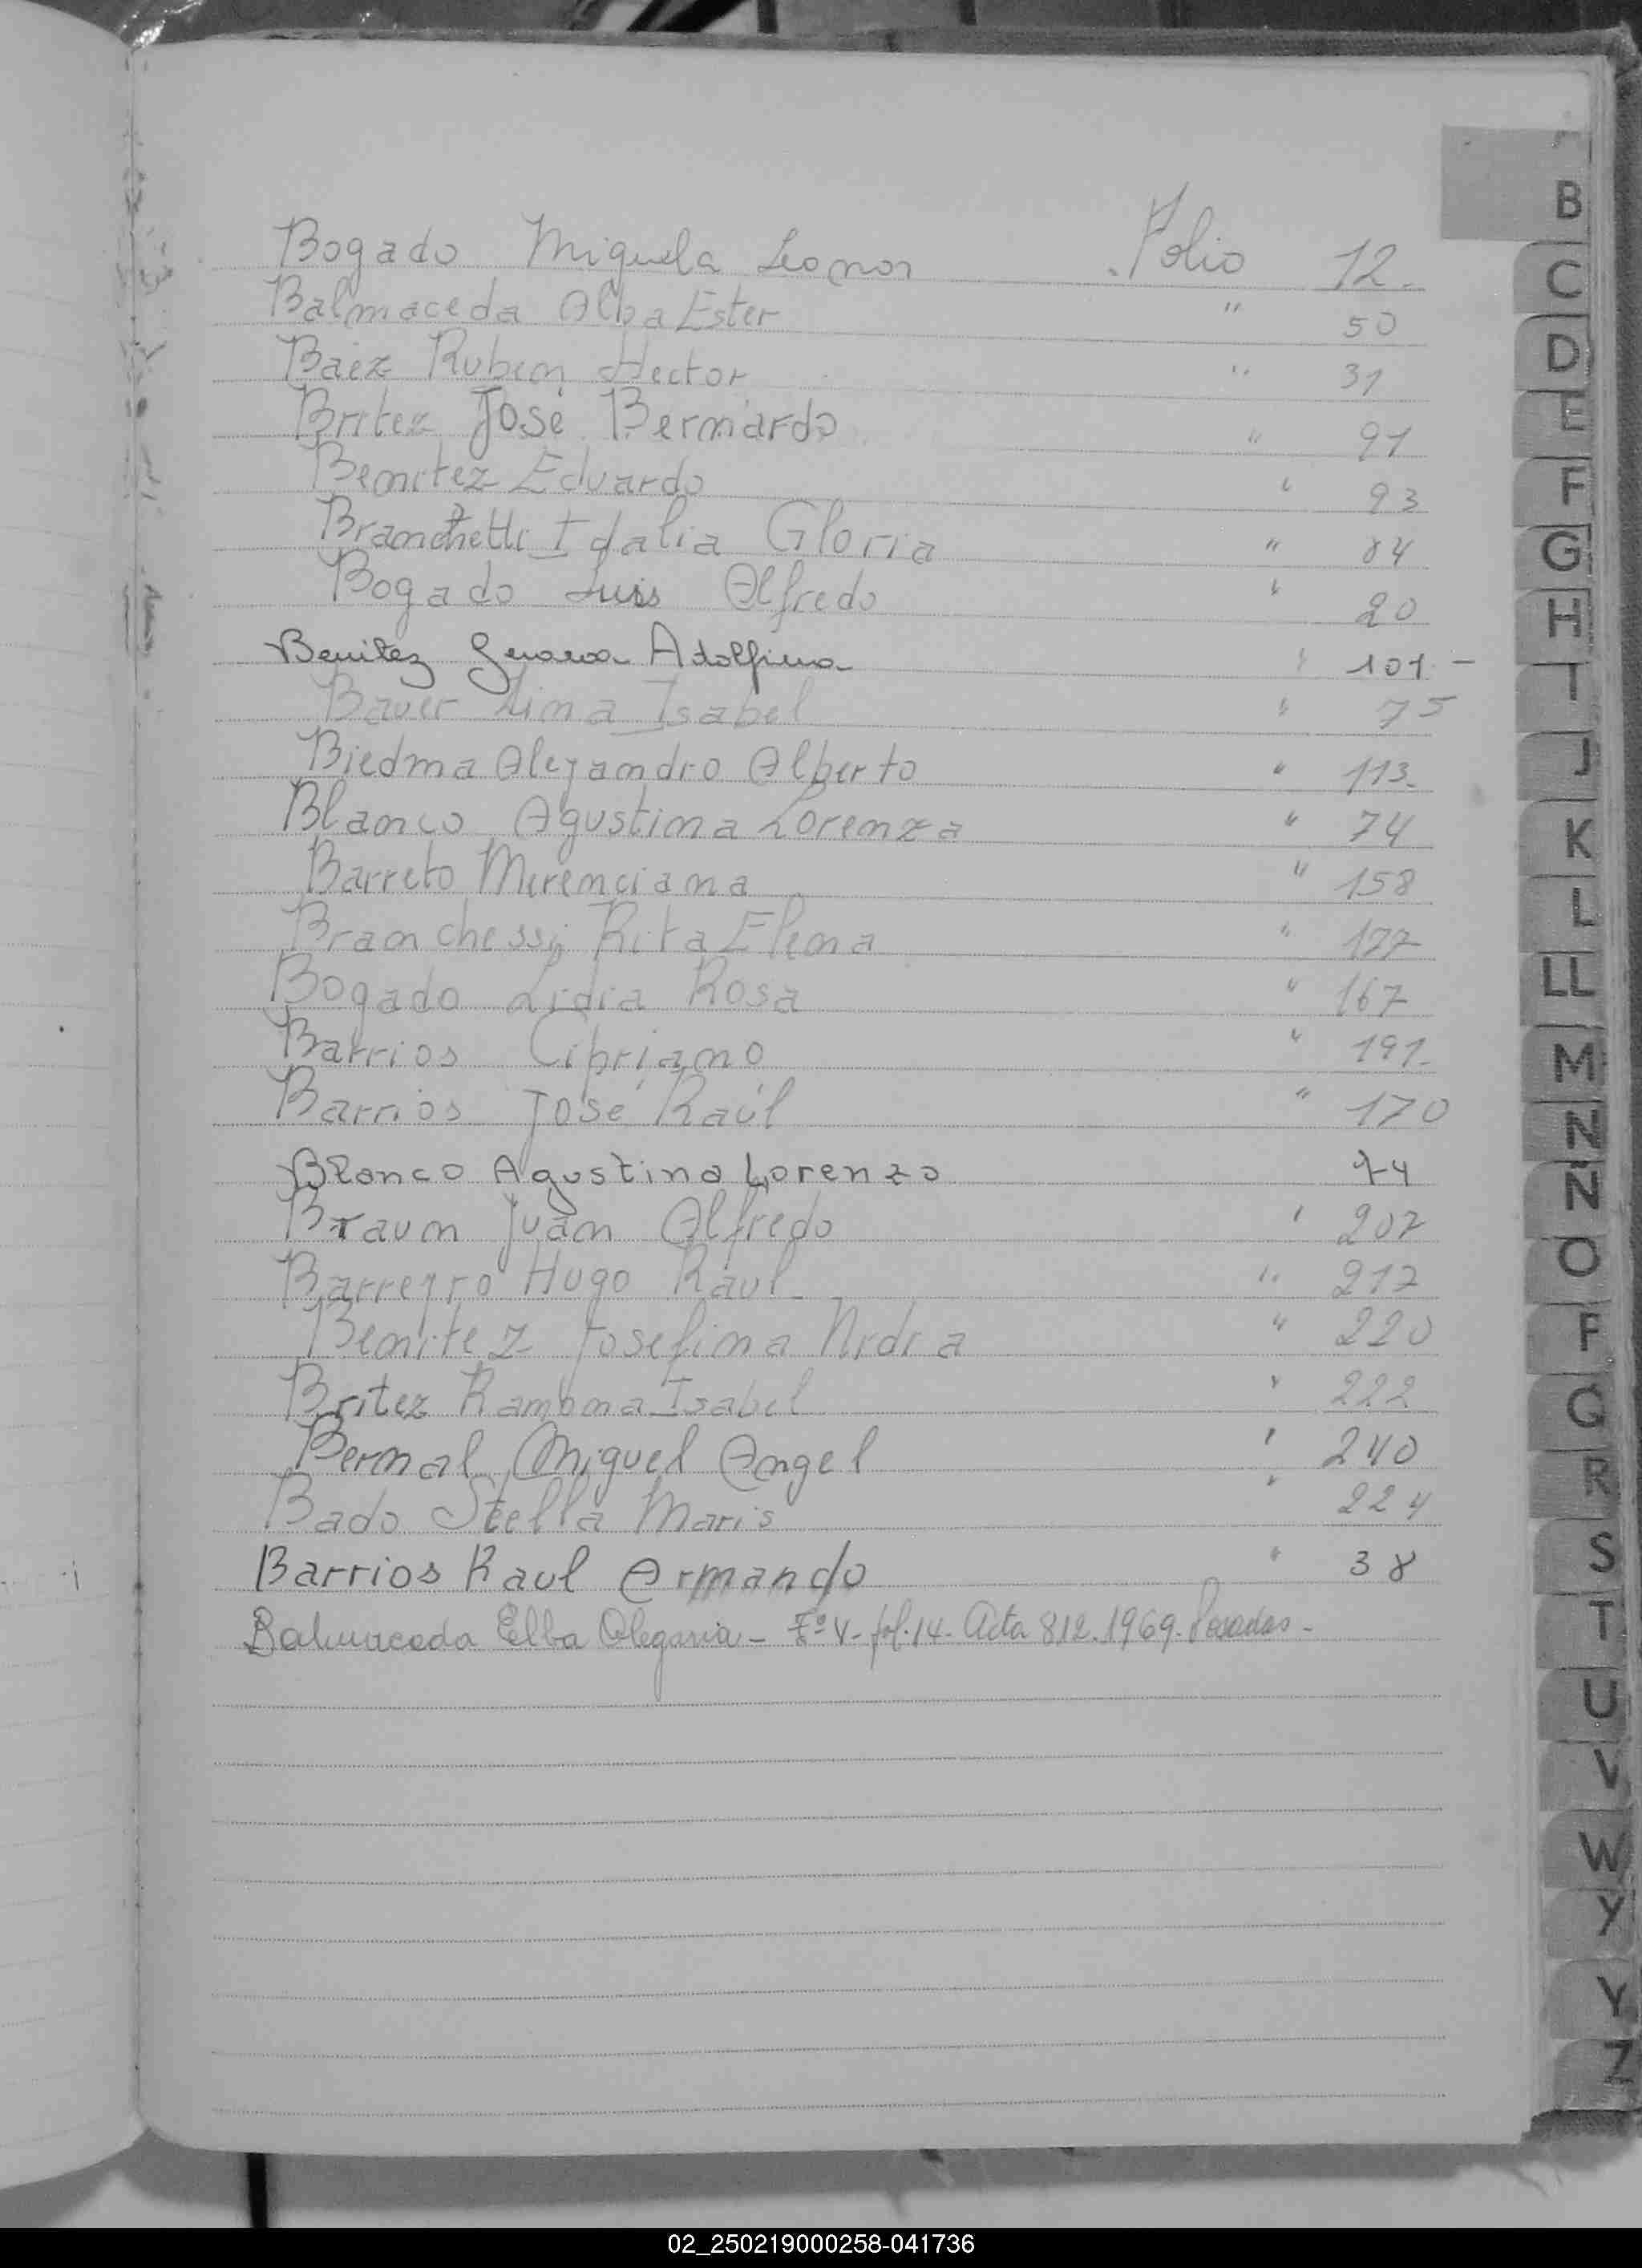 Bogado Miguela Leonor Folio 12.
Balmaceda Alba Ester " 50
Baez Ruben Hector " 31
Britez José Bernardo " 91
Benitez Eduardo " 93
Branchetti Idalia Gloria " 84
Bogado Luis Alfredo " 20
Benitez Adolfina " 101 -
Bauer Lima Isabel " 75
Biedma Alejandro Alberto " 113.
Blanco Agustina Lorenza " 74
Barreto Merenciana " 158
Branchessi Rita Elena " 177
Bogado Lidia Rosa " 167
Barrios Cipriano " 191-
Barrios José Raúl " 170
Blanco Agustina Lorenzo 74
Braun Juan Alfredo " 207
Barreyro Hugo Raul " 217
Benitez Josefina Nidia " 220
Britez Ramona Isabel " 222
Bernal Miguel Angel " 240
Bado Stella Maris " 224
Barrios Raul Armando " 38
Balmaceda Elba Olegaria - Tº V - fol. 14 - Acta 812. 1969. Posadas -
B
C
D
E
F
G
H
I
J
K
L
LL
M
N
Ñ
O
P
Q
R
S
T
U
V
W
Y
Y
Z
02_250219000258-041736